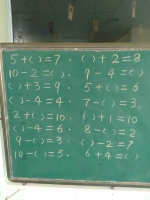 5+( )=7. ( )+2=8
10-2=( ). 9-4=( )
( )+3=9. 5+( )=6
( )-4=4 7-( )=3.
2+( )=10 ( )+1=10
( )-4=6. 8-( )=2
9-( )=3. ( )-2=7
10-( )=5. 6+4=( )